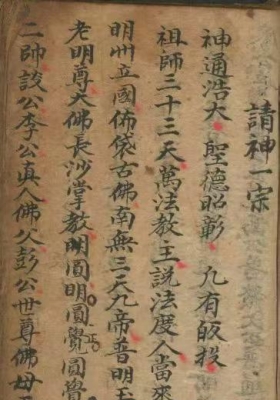 請神一宗
神通浩大聖德昭彰凡有皈投
祖師三十三天萬法教主說法度人當來
明卅立國佈袋古佛南無三天九帝普明
老明尊大佛長沙掌教明圓明圓覺圓覺
二帥談公李公真人佛父彭公世尊佛母